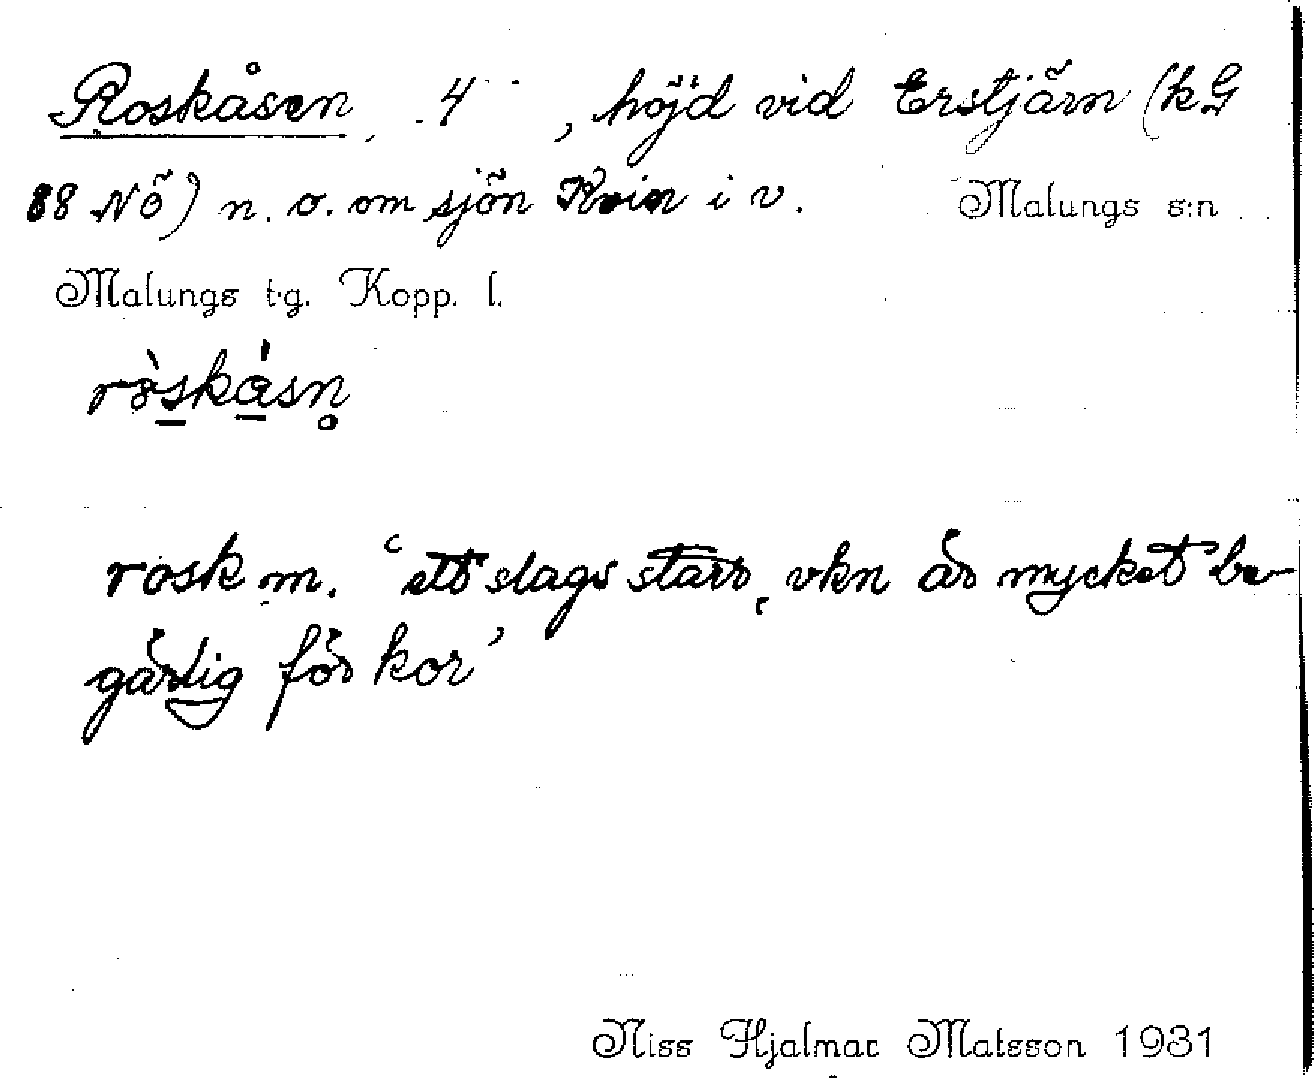 Roskåsen, 4, höjd vid Erstjärn (kG
88 NÖ) n. o. om sjön Kvien i v. Malungs s:n
Malungs t.g. Kopp. l.
ròskásn̥
rosk m. ‘ett slags starr, vkn är mycket be-
gärlig för kor’
Niss Hjalmar Matsson 1931